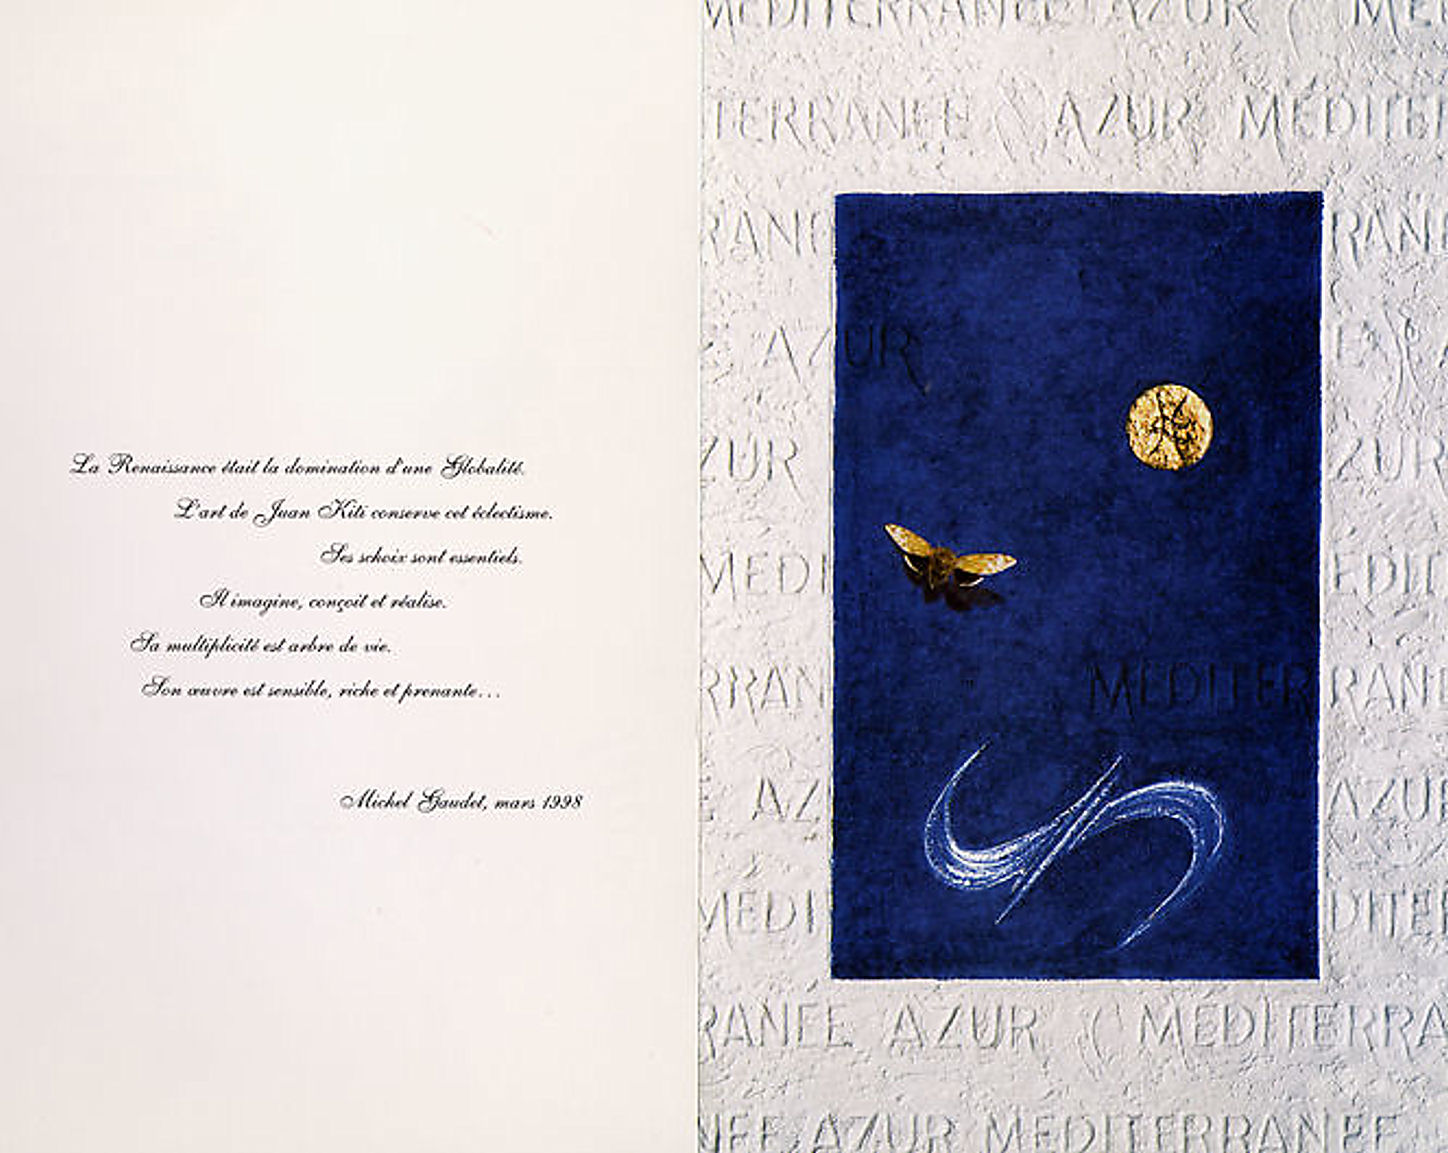 La Renaissance était la domination d'une Globalité.
L'art de Juan Kiti conserve cet éclectisme.
Ses schoix sont essentiels.
Il imagine, conçoit et réalise.
Sa multiplicité est arbre de vie.
Son œuvre est sensible, riche et prenante...
Michel Gaudet, mars 1998
MEDITERRANEE AZUR ME
TERRANEE AZUR MEDITER
RANE RANE
E AZUR E A
ZUR ZUR
MEDI EDIT
RRAN MEDITERRANE
E AZ AZUR
MEDI DITER
RANEE AZUR MEDITERRA
NEE AZUR MEDITERRANEE